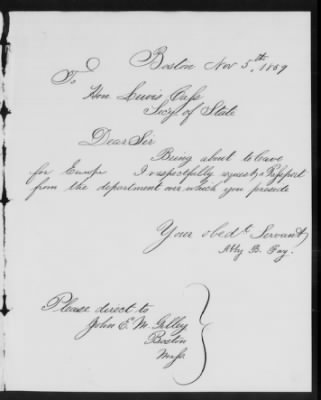 Boston Nov 5th. 1859
To
Hon Lewis Cass
Secy of State
Dear Sir
Being about to leave
for Europe I respectfully request a Passport
from the department over which you preside
Your obedt. Servant
Abby B. Fay.
Please direct to
John E. M. Gilley
Boston
Mass